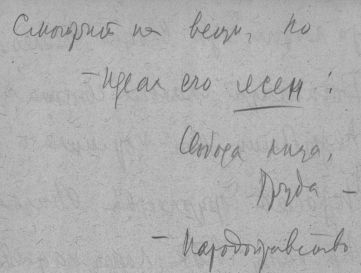 Смотрит на вещи, но
– идеал его ясен:
Свобода лица,
Труда –
– Народоправство